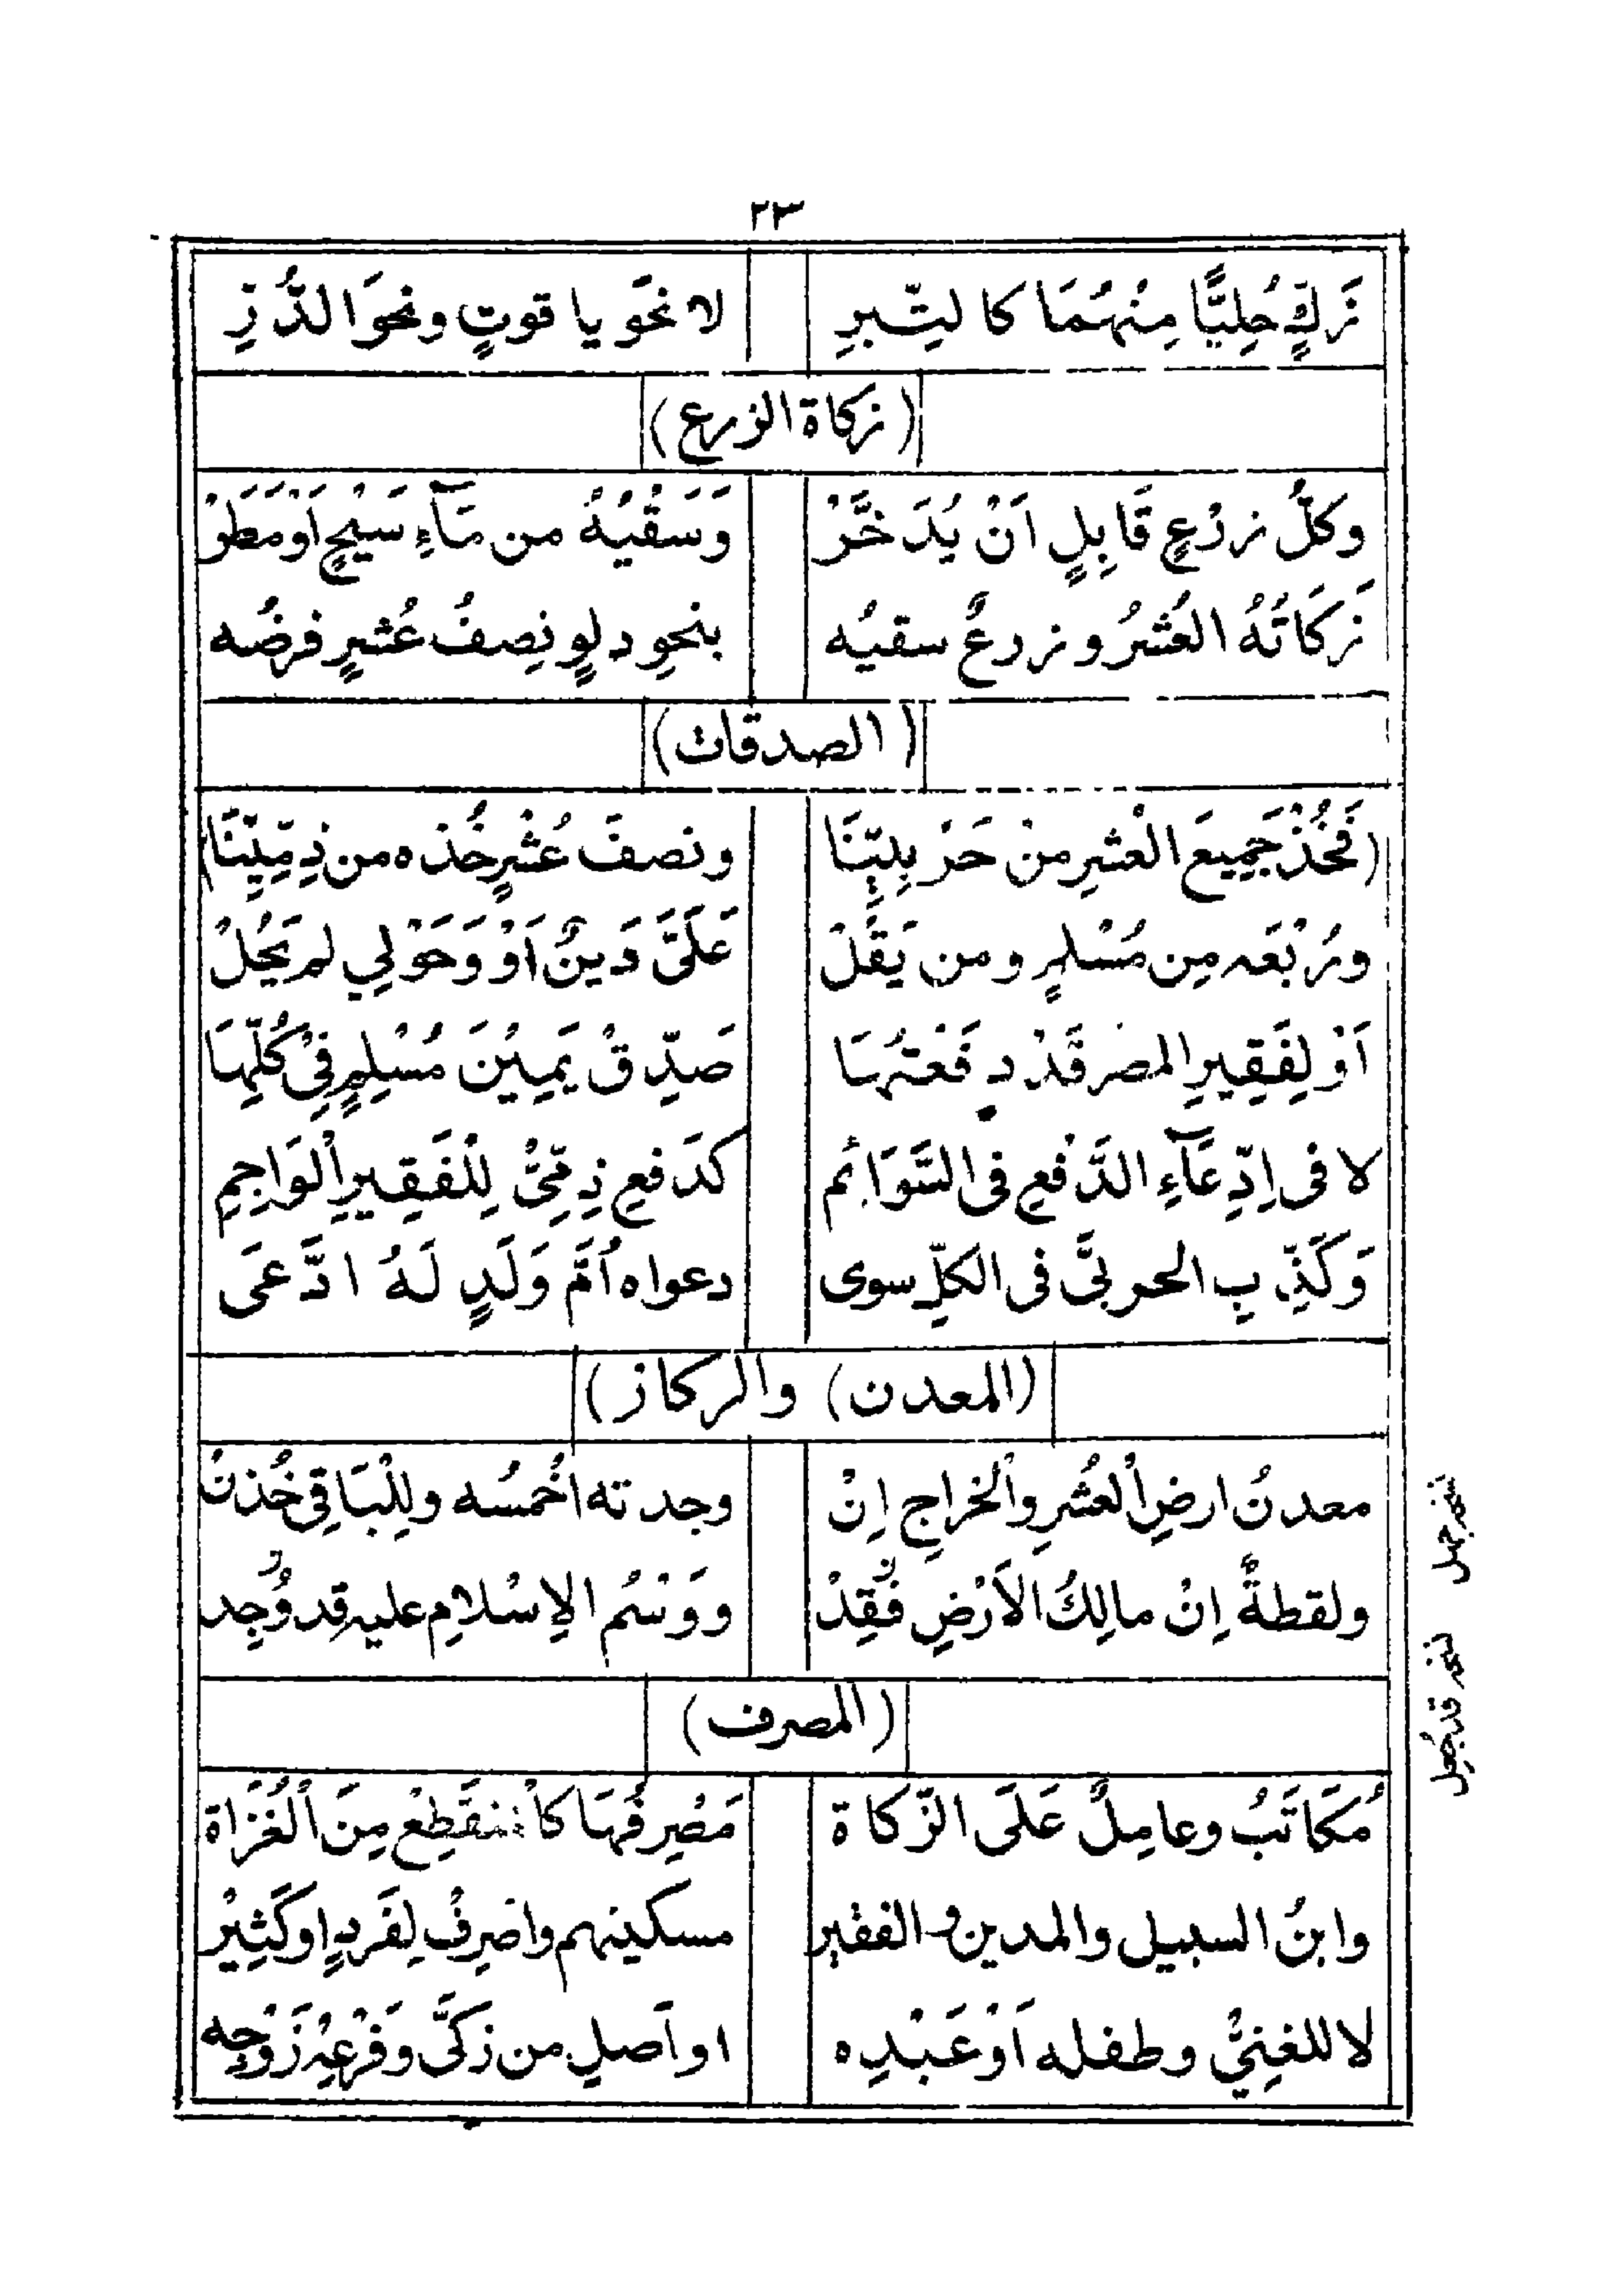 ٢٣
زَكِّ حُلِيًّا مِنْهُمَا كالتِّبرِ لا نحَو ياقوتٍ ونحوَ الدُّرِّ
(زكاة الزرع)
وكلُّ زرْعٍ قَابِلٍ اَنْ يُدَخَّرْ وَسَقْيُهُ من مَآءِ سَيْحٍ اَوْ مَطَرْ
زَكَاتُهُ العُشْرُ وزرعٌ سقيُه بنحوِ دلوٍ نِصفُ عُشرٍ فرضُه
(الصدقات)
(فَخُذْ جَمِيعَ الْعشرِ منْ حَرْبِيِّنَا ونصفَ عُشْرٍ خُذه من ذِمِّيِّنَا)
ورُبْعَه مِن مُسْلمٍ ومن يَقُلْ عَلَىَّ دَينٌ اَوْ وَحَوْلِي لم يَحُلْ
اَوْ لِفَقِيرِ المصرِ قَدْ دفَعْتُهَا صَدِّقْ يَمِيْنَ مُسْلِمٍ فِيْ كُلِّهَا
لا فى اِدِّعَآءِ الدَّفعِ فى السَّوَائم كدَفعِ ذِمِّىٍّ لِلْفَقِيرِ الْوَاجِمِ
وَكَذِّبِ الحربىَّ فى الكلِّ سوى دعواه اُمَّ وَلَدٍ لَهُ ادَّعَى
(المعدن) والركاز)
معدنُ ارضِ الْعُشرِ والْخراجِ اِنْ وجدته اخُمسُه ولِلْبَاقِي خُذنْ
ولقطةٌ اِنْ مالِكُ الاَرْضِ فُقِدْ ووَسْمُ الاِسْلامِ عليه قد وُجِد
نسخه جهل
نسخه قد جُعِل
(المصرف)
مُكَاتَبُ وعامِلٌ عَلَى الزَّكاة مَصْرِفُهَا كالْمنقَطِعْ مِنَ الْغُزَاة
وابنُ السبيل والمدين والفقير مسكينهم واصْرِفْ لِفَردٍ اوكَثِيرْ
لا للغِنيِّ وطفله اَوْ عَبْدِه او اَصلِ من زكَّى وفَرْعِهْ زَوْجِه